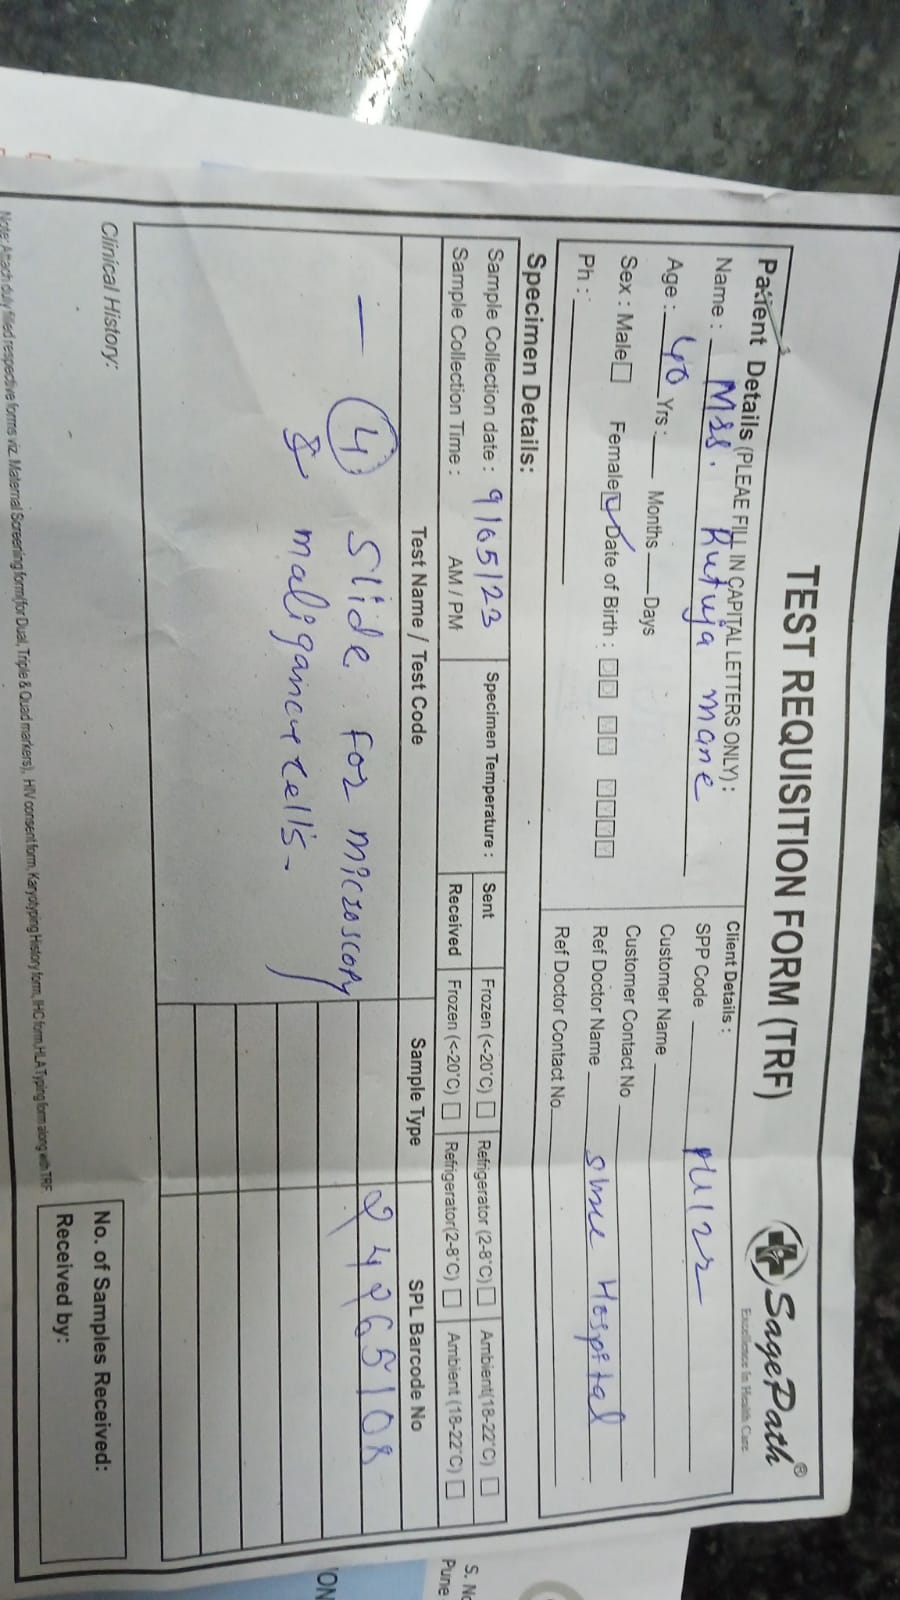 TEST REQUISITION FORM (TRF)
SagePath®
Excellence In Health Care
Patient Details (PLEAE FILL IN CAPITAL LETTERS ONLY):
Name : Mrs. Rutuja mane
Age : 40 Yrs : Months Days
Sex : Male Female Date of Birth : DD MM YYYY
Ph :
Client Details :
SPP Code PU122
Customer Name
Customer Contact No
Ref Doctor Name Hospital
Ref Doctor Contact No
Specimen Details:
Sample Collection date : 9/05/23
Sample Collection Time : AM / PM
Specimen Temperature :
Sent Frozen (<-20°C) Refrigerator (2-8°C) Ambient(18-22°C)
Received Frozen (<-20°C) Refrigerator(2-8°C) Ambient (18-22°C)
Test Name / Test Code Sample Type SPL Barcode No
— (4) Slide for microscopy
& maligancy cells.
Clinical History:
No. of Samples Received:
Received by:
Note: Attach duly filled respective forms viz. Maternal Screening form(for Dual, Triple & Quad markers), HIV consent form, Karyotyping History form, IHC form,HLA Typing form along with TRF
S. No
Pune
'ON